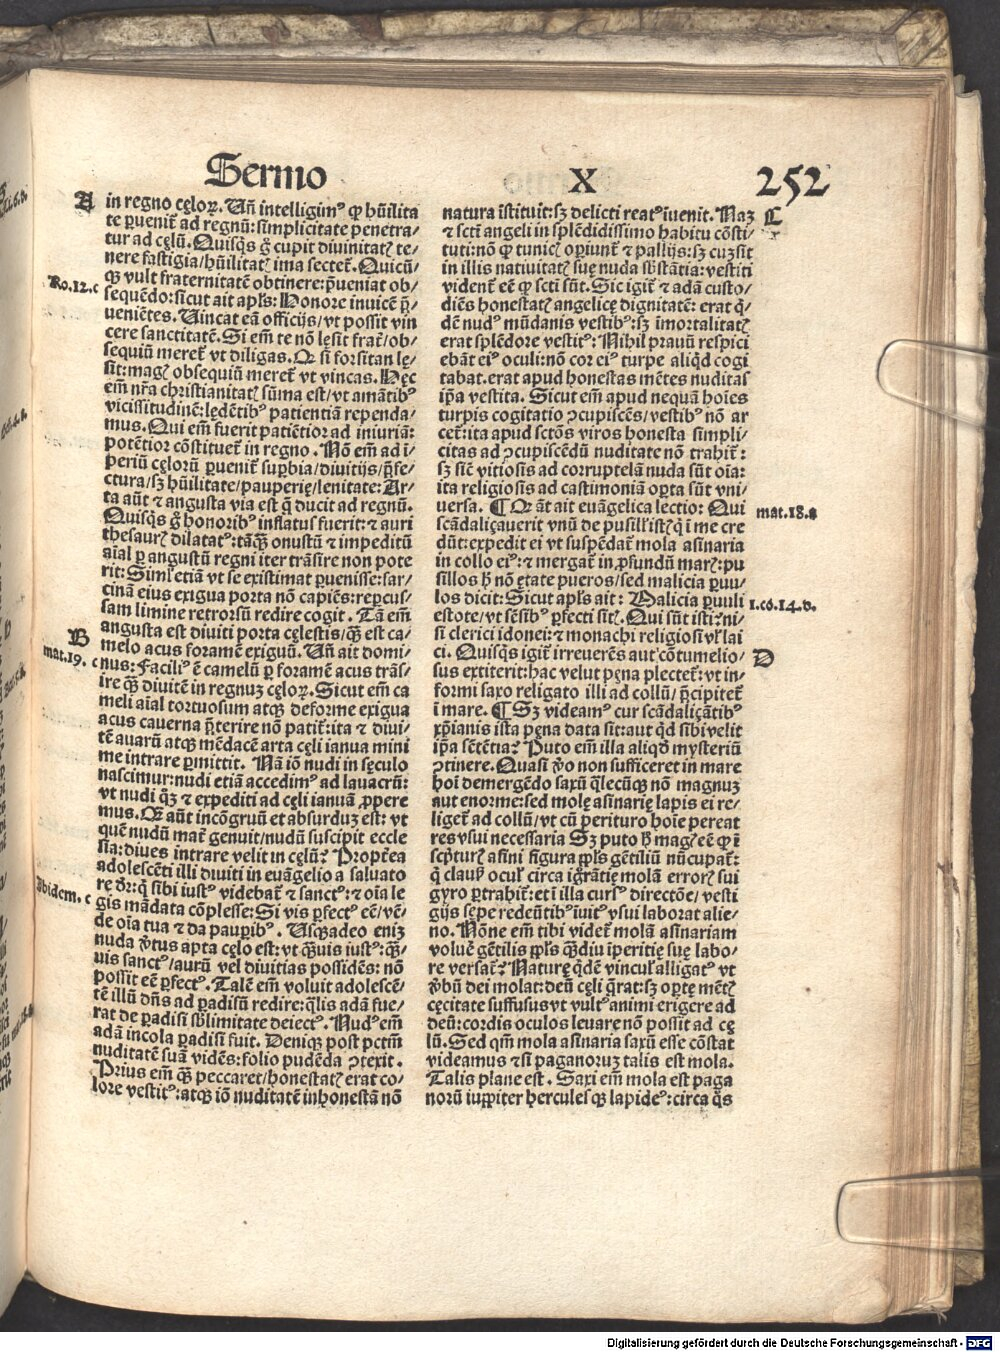 Sermo X 252
A
in regno cęloꝝ. Vñ intelligimꝰ ꝙ hũilita
te ꝑuenit̃ ad regnũ: simplicitate penetra⸗
tur ad cęlũ. Quisq̃s g̃ cupit diuinitatꝭ te⸗
nere fastigia/hũilitatꝭ ima sectet̃. Quicũ⸗
qꝫ vult fraternitatẽ obtinere: p̃ueniat ob⸗
Ro.12.c
sequẽdo: sicut ait apl̃s: Honore inuicẽ p̃⸗
ueniẽtes. Vincat eã officijs/vt possit vin
cere sanctitatẽ. Si em̃ te nõ lęsit frat̃/ob⸗
sequiũ meret̃ vt diligas. Q si forsitan lę⸗
sit: magꝭ obsequiũ meret̃ vt vincas. Hęc
em̃ nr̃a christianitatꝭ sũma est/vt amãtibꝰ
vicissitudinẽ: lędẽtibꝰ patientiã rependa⸗
mus. Qui em̃ fuerit patiẽtior ad iniuriã:
potẽtior cõstituet̃ in regno. Nõ em̃ ad ĩ⸗
periũ cęlorũ ꝑuenit̃ suꝑbia/diuitijs/p̃fe⸗
ctura/sꝫ hũilitate/pauperię/lenitate: Ar⸗
ta aũt ⁊ angusta via est q̃ ducit ad regnũ.
Quisq̃s g̃ honoribꝰ inflatus fuerit: ⁊ auri
thesaurꝭ dilatatꝰ: tãqꝫ onustũ ⁊ impeditũ
aĩal ꝑ angustũ regni iter trãsire non pote
rit: Siml̃ etiã vt se existimat ꝑuenisse: sar⸗
cinã eius exigua porta nõ capiẽs: reꝑcus⸗
sam limine retrorsũ redire cogit. Tã em̃
angusta est diuiti porta cęlestis/qꝫ est ca⸗
B
melo acus foramẽ exiguũ. Vñ ait domi⸗
mat.19.c
nus: Faciliꝰ ẽ camelũ ꝑ foramẽ acus trãs⸗
ire qꝫ diuitẽ in regnuꝫ cęloꝝ. Sicut em̃ ca
meli aĩal tortuosum atqꝫ deforme exigua
acus cauerna p̃terire nõ patit̃: ita ⁊ diui⸗
tẽ auarũ atqꝫ mẽdacẽ arta cęli ianua mini
me intrare ꝑmittit. Nã iõ nudi in sęculo
nascimur: nudi etiã accedimꝰ ad lauacrũ:
vt nudi q̃ꝫ ⁊ expediti ad cęli ianuã ꝓpere
mus. Q̃ aũt incõgruũ et absurduꝫ est: vt
quẽ nudũ mat̃ genuit/nudũ suscipit eccle
sia: diues intrare velit in cęlũ? Propt̃ea
adolescẽti illi diuiti in euãgelio a saluato
re dr̃: q̃ sibi iustꝰ videbat̃ ⁊ sanctꝰ: ⁊ oĩa le
Ibidem.c
gis mãdata cõplesse: Si vis ꝑfectꝰ eẽ/vẽ⸗
de oĩa tua ⁊ da pauꝑibꝰ. Vsqꝫadeo eniꝫ
nuda v̾tus apta cęlo est: vt qꝫuis iustꝰ: qꝫ⸗
uis sanctꝰ/aurũ vel diuitias possidẽs: nõ
possit eẽ ꝑfectꝰ. Talẽ em̃ voluit adolescẽ⸗
tẽ illũ dñs ad ꝑadisũ redire: q̃lis adã fue⸗
rat de ꝑadisi sb̃limitate deiectꝰ. Nudꝰ em̃
adã incola ꝑadisi fuit. Deniqꝫ post pctm̃
nuditatẽ suã vidẽs: folio pudẽda ꝯtexit.
Prius em̃ qꝫ peccaret/honestatꝭ erat co⸗
lore vestitꝰ: atqꝫ iõ nuditatẽ inhonestã nõ
natura ĩstituit: sꝫ delicti reatꝰ ĩuenit. Naꝫ
C
⁊ sctĩ angeli in splẽdidissimo habitu cõsti⸗
tuti: nõ ꝙ tunicꝭ oꝑiunt̃ ⁊ pallijs: sꝫ cuꝫ sit
in illis nativitatꝭ suę nuda sb̃stãtia: vestiti
vident̃ eẽ ꝙ sctĩ sũt. Sic igit̃ ⁊ adã custo⸗
diẽs honestatꝭ angelicę dignitatẽ: erat q̃⸗
dẽ nudꝰ mũdanis vestibꝰ: sꝫ ĩmortalitatꝭ
erat splẽdore vestitꝰ: Nihil prauũ respici
ebãt eiꝰ oculi: nõ cor eiꝰ turpe aliqd̃ cogi
tabat. erat apud honestas mẽtes nuditas
ip̃a vestita. Sicut em̃ apud nequã hoĩes
turpis cogitatio ꝯcupiscẽs/vestibꝰ nõ ar
cet̃: ita apud sctõs viros honesta simpli⸗
citas ad ꝯcupiscẽdũ nuditate nõ trahit̃:
sꝫ sic̃ vitiosis ad corruptelã nuda sũt oĩa:
ita religiosis ad castimoniã oꝑta sũt vni⸗
uersa. ¶ Q ãt ait euãgelica lectio: Qui
mat.18.a
scãdaliçauerit vnũ de pusillꝭ istꝭ q̃ ĩ me cre
dũt: expedit ei vt suspẽdat̃ mola asinaria
in collo eiꝰ: ⁊ mergat̃ in ꝓfundũ marꝭ: pu
sillos h̃ nõ ętate pueros/sed malicia ꝑuu⸗
los dicit: Sicut apl̃s ait: Malicia ꝑuuli
1.co.14.d.
estote/vt sẽsibꝰ ꝑfecti sitꝭ. Qui sũt isti: ni⸗
si clerici idonei: ⁊ monachi religiosi vl̃ lai
ci. Quisq̃s igit̃ irreuerẽs aut cõtumelio⸗
D
sus extiterit: hac velut pęna plectet̃: vt in⸗
formi saxo religato illi ad collũ/p̃cipitet̃
ĩ mare. ¶ Sꝫ videamꝰ cur scãdaliçãtibꝰ
xp̃ianis ista pęna data sit: aut qd̃ sibi velit
ip̃a sẽtẽtia? Puto em̃ illa aliqd̃ mysteriũ
ꝯtinere. Quasi v̾o non sufficeret in mare
hoĩ demergẽdo saxũ q̃lecũqꝫ nõ magnuꝫ
aut enorme: sed molę asinarię lapis ei re⸗
liget̃ ad collũ/vt cũ ꝑerituro hoĩe pereat
res vsui necessaria Sꝫ puto h̃ magꝭ eẽ ꝙ ĩ
scp̃turꝭ asini figura ppl̃s gẽtiliũ nũcupat̃:
q̃ clausꝭ oculꝭ circa ignorãtię molã errorꝭ sui
gyro ꝑtrahit̃: et ĩ illa cursꝰ directõe/vesti
gijs sępe redeũtibꝰ ĩuitꝰ vsui laborat alie⸗
no. Nõne em̃ tibi videt̃ molã asinariam
voluẽ gẽtilis ppl̃s qꝫdiu ĩperitię suę labo⸗
re versat̃? Naturę q̃dẽ vinculꝭ alligatꝰ vt
v̾bũ dei molat: deũ cęli q̃rat: sꝫ oꝑtę mẽtꝭ
cęcitate suffusus vt vultꝰ animi erigere ad
deũ: cordis oculos leuare nõ possit ad cę
lũ. Sed qm̃ mola asinaria saxũ esse cõstat
videamus ⁊ si paganoruꝫ talis est mola.
Talis plane est. Saxi em̃ mola est paga
norũ iuppiter hercules qꝫ lapideꝰ: circa q̃s
Digitalisierung gefördert durch die Deutsche Forschungsgemeinschaft - DFG